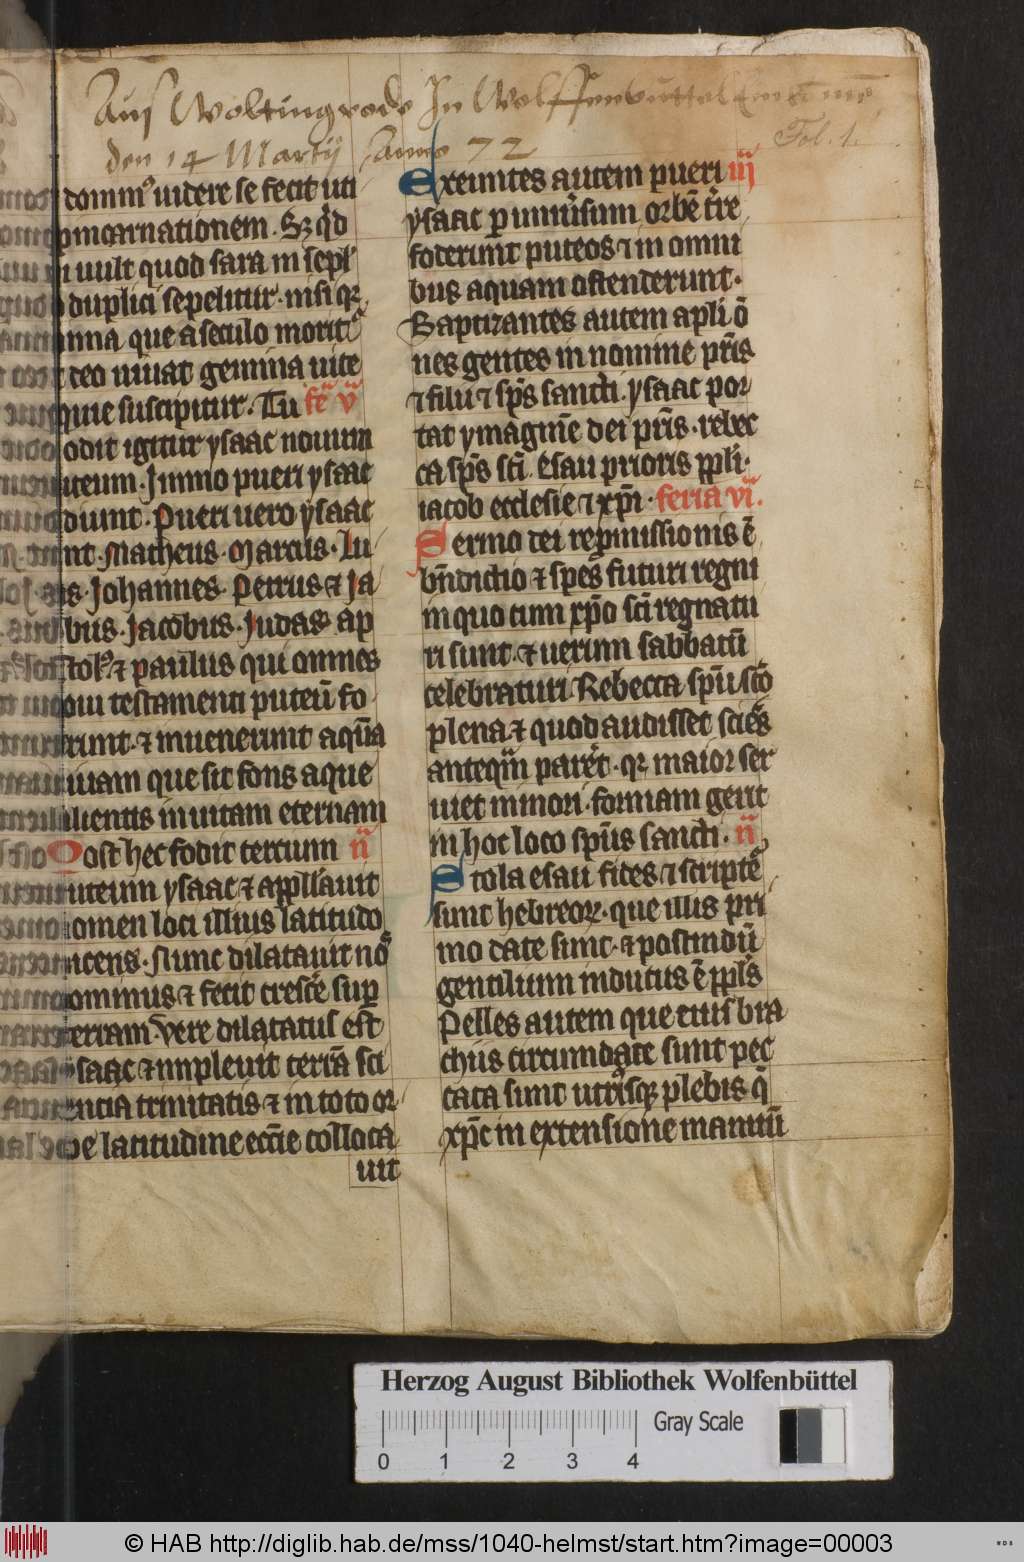 Aus Woltingrode In Wolffenbuttel
den 14 Martij Anno 72
Fol. 1.
domin' uidere se fecit uti
incarnationem. Sz qd
uult quod sara in sepl'
duplici sepelitur. nisi qr
anima que a seculo morit'
deo uiuat gemina uite
quie suscipitur. Tu fe v
odit igitur ysaac nouum
puteum. Immo pueri ysaac
diunt. Pueri uero ysaac
Matheus. Marcus. Lu
as. Johannes. Petrus & Ja
bus. Jacobus. Judas ap
tol' & paulus qui omnes
oui testamenti puteū fo
runt. & inuenerunt aquā
uiuam que fit fons aque
salientis in uitam eternam
Post hec fodit tercium ii
uteum ysaac & appllauit
omen loci illius latitudo
icens. Nunc dilatauit nos
ominus & fecit crescē sup
terram. Vere dilatatus est
ysaac & impleuit terrā sci
entia trinitatis & in toto or
be latitudine ecciē colloca
uit
Exeuntes autem pueri iii
ysaac p uniuersum orbē tre
foderunt puteos ⁊ in omni
bus aquam ostenderunt.
Baptizantes autem apli ō
nes gentes in nomine pris
⁊ filii ⁊ sps sancti. ysaac por
tat ymaginē dei pris. rebec
ca sps sci. Esau prioris ppli.
iacob ecclesie ⁊ xpi. feria vi.
Sermo dei repmissionis ē
bndictio & spes futuri regni
in quo cum xpo sci regnatu
ri sunt. & uerum sabbatū
celebraturi. Rebecca spu sco
plena. & quod audisset sciēs
anteqm paret. qr maior ser
uiet minori. formam gerit
in hoc loco spus sancti. ii
Stola esau fides & scripte
sunt hebreor. que illis pri
mo date sunt. & postmodū
gentilium indutus ē ppls
Pelles autem que eius bra
chiis circumdate sunt pec
cata sunt utriusq plebis q
xpc in extensione manuū
Herzog August Bibliothek Wolfenbüttel
Gray Scale
0 1 2 3 4
© HAB http://diglib.hab.de/mss/1040-helmst/start.htm?image=00003